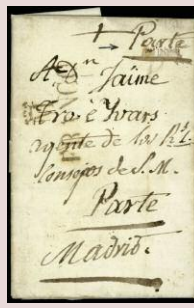 + Parte
A Dn Jaime
Fro è Yvars
agente de los Rs.
Consejos de S. M.
Parte
Madrid.